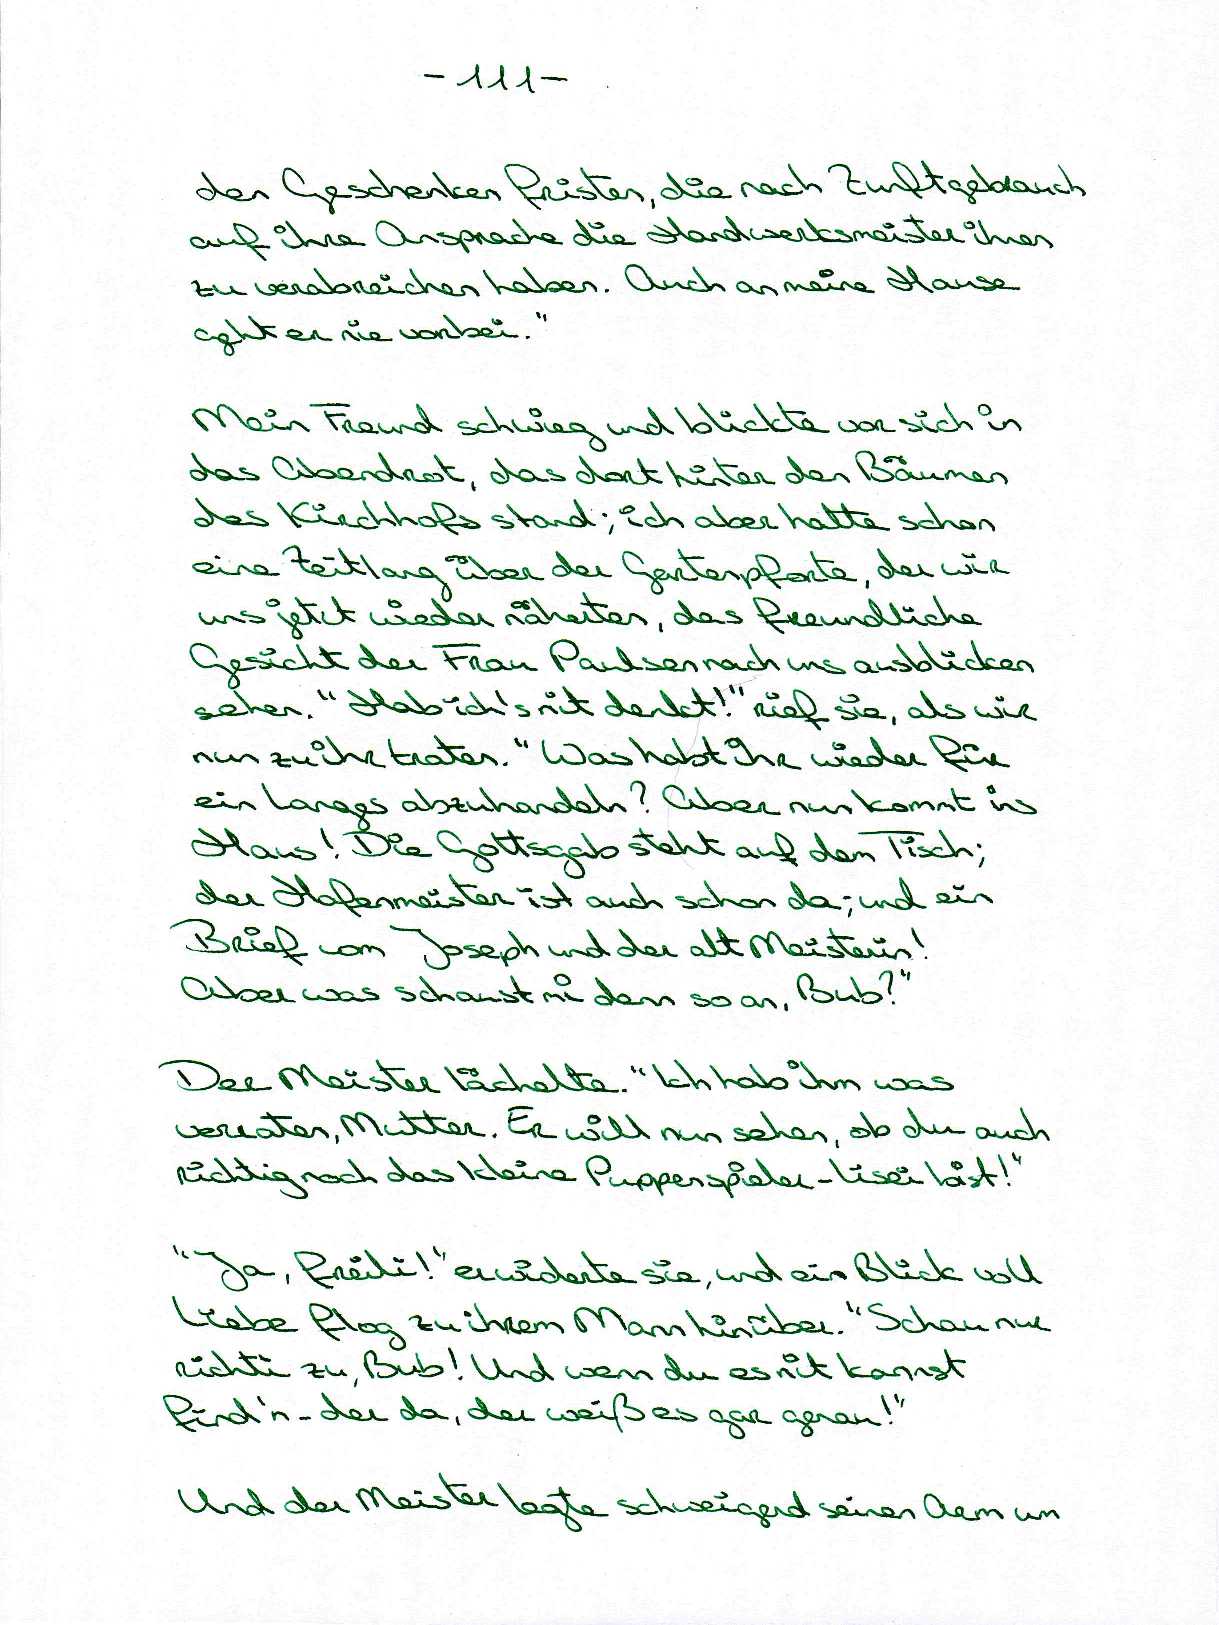 - 111 -
den Geschenken fristen, die nach Zunftgebrauch
auf ihre Ansprache die Handwerksmeister ihnen
zu verabreichen haben. Auch an meine Hause
geht er nie vorbei."
Mein Freund schwieg und blickte vor sich in
das Abendrot, das dort hinter den Bäumen
des Kirchhofs stand; ich aber hatte schon
eine Zeitlang über der Gartenpforte, der wir
uns jetzt wieder näherten, das freundliche
Gesicht der Frau Paulsen nach uns ausblicken
sehen. "Hab ich's nit denkt!" rief sie, als wir
nun zu ihr traten. "Was habt Ihr wieder für
ein Langgs abzuhandeln? Aber nun kommt ins
Haus! Die Gottsgab steht auf dem Tisch;
der Hafenmeister ist auch schon da; und ein
Brief vom Joseph und der alt Meisterin!
Aber was schaust mi denn so an, Bub?"
Der Meister lächelte. "Ich hab ihm was
verraten, Mutter. Er will nun sehen, ob du auch
richtig noch das kleine Puppenspieler-Lisei bist!"
"Ja, freili!" erwiderte sie, und ein Blick voll
Liebe flog zu ihrem Mann hinüber. "Schau nur
richti zu, Bub! Und wenn du es nit kannst
find'n - der da, der weiß es gar genau!"
Und der Meister legte schweigend seinen Arm um